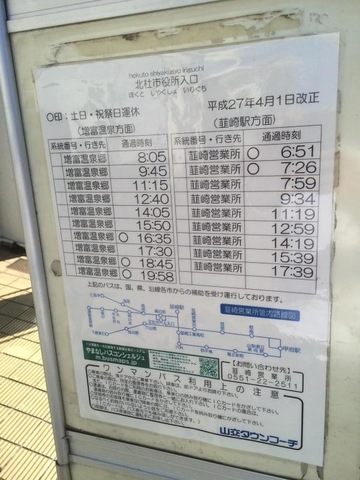 hokuto shiyakusyo iriguchi
北杜市役所入口
ほくと しやくしょ いりぐち
〇印：土日・祝祭日運休 平成27年4月1日改正
（増富温泉方面） （韮崎駅方面）
系統番号・行き先 通過時刻 系統番号・行き先 通過時刻
増富温泉郷 8:05 韮崎営業所 〇 6:51
増富温泉郷 9:45 韮崎営業所 〇 7:26
増富温泉郷 11:15 韮崎営業所 7:59
増富温泉郷 12:40 韮崎営業所 9:34
増富温泉郷 14:05 韮崎営業所 11:19
増富温泉郷 15:50 韮崎営業所 12:59
増富温泉郷 〇 16:35 韮崎営業所 14:19
増富温泉郷 17:30 韮崎営業所 15:39
増富温泉郷 〇 18:45 韮崎営業所 17:39
増富温泉郷 〇 19:58
上記のバスは、国、県、沿線各市からの補助を受け運行しております。
韮崎営業所管内路線図
甲府駅
やまなしバスコンシェルジュ
m.busmaps.jp
【お問い合わせ先】
韮崎営業所
0551-22-2511
ワンマンバス利用上の注意
山交タウンコーチ